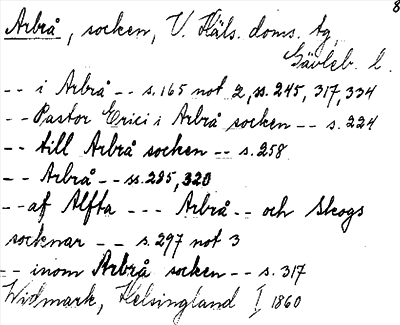 8
Arbrå, socken, V. Häls. doms. tg,
Gävleb. l.
-- i Arbrå -- s. 165 not 2, ss. 245, 317, 334
-- Pastor Erici i Arbrå socken -- s. 224
-- till Arbrå socken -- s. 258
-- Arbrå -- ss. 295, 320
-- af Alfta --- Arbrå -- och Skogs
socknar -- s. 297 not 3
-- inom Arbrå socken -- s. 317
Widmark, Helsingland I, 1860